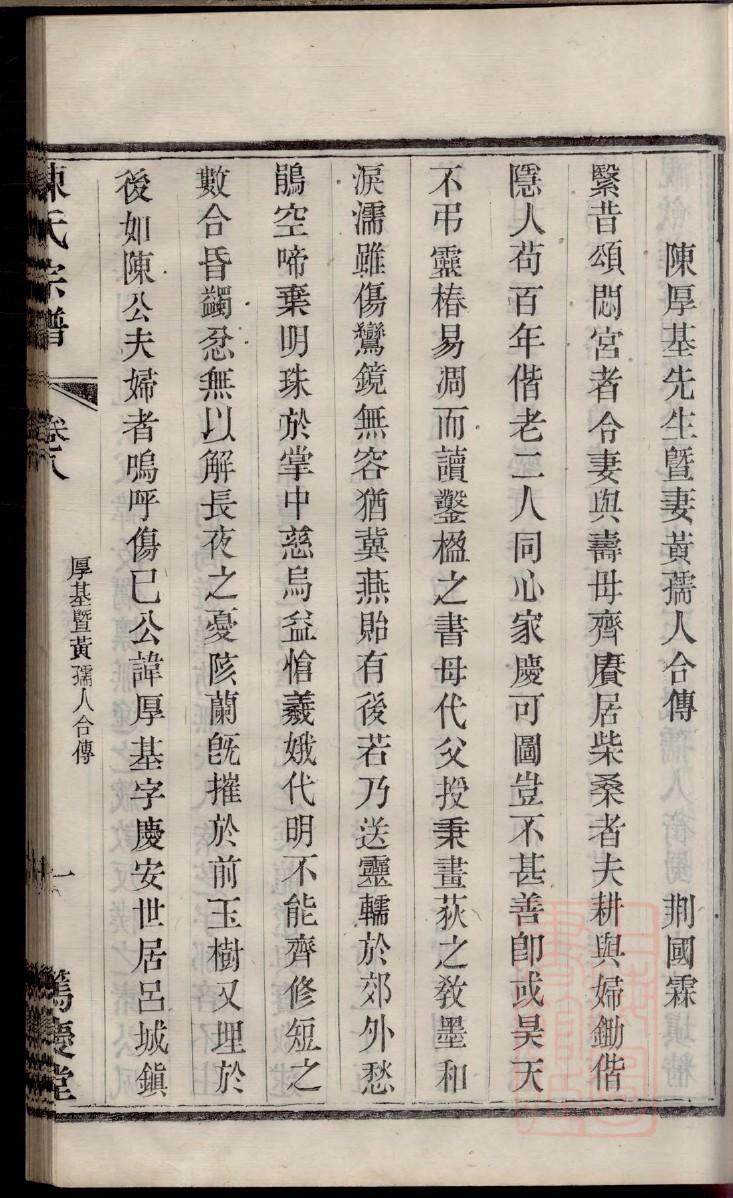 陳厚基先生曁妻黃孺人合傳　荆國霖
緊昔頌閟宮者令妻與壽母齊賡居柴桑者夫耕與婦鋤偕
隱人苟百年偕老二人同心家慶可圖豈不甚善卽或昊天
不弔靈椿易凋而讀鑿楹之書母代父授秉畫荻之敎墨和
淚濡雖傷鸞鏡無容猶冀燕貽有後若乃送靈輀於郊外愁
鵑空啼棄明珠於掌中慈烏益愴羲娥代明不能齊修短之
數合昏蠲忿無以解長夜之憂陔蘭旣摧於前玉樹又埋於
後如陳公夫婦者嗚呼傷已公諱厚基字慶安世居呂城鎭
陳氏宗譜　卷八　厚基曁黃孺人合傳　一　篤慶堂